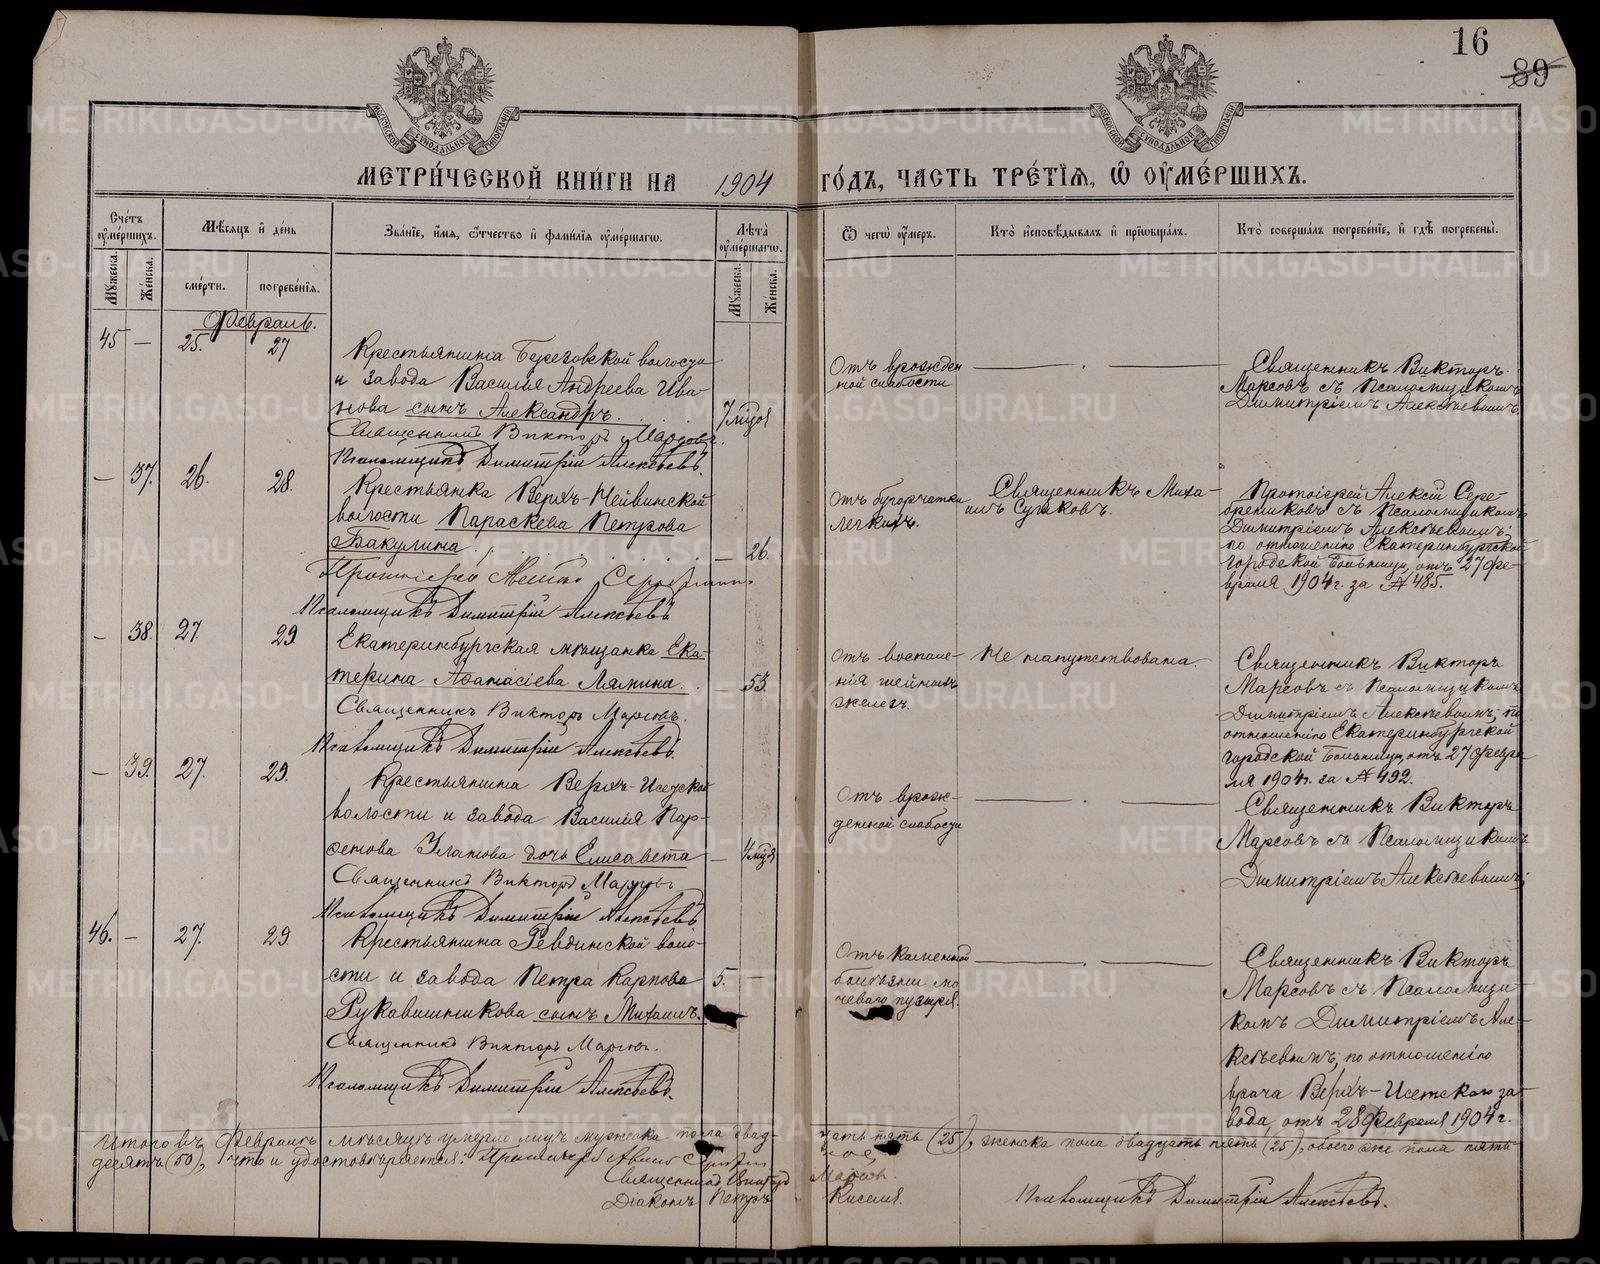 16
89
МЕТРИ́ЧЕСКОЙ КНИ́ГИ НА 1904 ГО́ДЪ, ЧАСТЬ ТРЕ́ТІѦ, Ѡ ОУМЕ́РШИХЪ.
Сче́тъ оуме́ршихъ.
Мѣсѧцъ и день
Зва́нїе, и́мѧ, о́тчество и фами́лїѧ оуме́ршагѡ.
Лѣта̀ оуме́ршагѡ.
Ѿ чегѡ̀ оу́меръ.
Кто̀ исповѣ́дывалъ и прїѡбща́лъ.
Кто̀ соверша́лъ погребе́нїе, и гдѣ̀ погребены̀.
Мужеска.
Женска.
сме́рти.
погребе́нїѧ.
Мужеска.
Женска.
Февраль.
45 — 25. 27
Крестьянина Березовской волости
и завода Василья Андреева Ива-
нова сынъ Александръ.
7 мѣся
Священникъ Викторъ Марсовъ.
Псаломщикъ Димитрій Алексѣевъ.
Отъ врожден
ной слабости
Священникъ Викторъ
Марсовъ съ Псаломщикомъ
Димитріемъ Алексѣевымъ
— 37. 26. 28.
Крестьянка Верхъ-Нейвинской
волости Параскева Петрова
Бакулина
— 26.
Протоіерей
Псаломщикъ Димитрій Алексѣевъ
Отъ бугорчатки
легкихъ.
Священникъ Миха-
илъ Сушковъ.
Протоіерей Алексій Сере-
бренниковъ съ Псаломщикомъ
Димитріемъ Алексѣевымъ;
по отношенію Екатеринбургской
городской Больницы отъ 27 фе-
враля 1904 г. за № 485.
— 38. 27. 29.
Екатеринбургская мѣщанка Ека-
терина Аѳанасіева Лямина.
53.
Священникъ Викторъ Марсовъ.
Псаломщикъ Димитрій Алексѣевъ.
Отъ воспале-
нія шейныхъ
железъ.
Не напутствована.
Священникъ Викторъ
Марсовъ съ Псаломщикомъ
Димитріемъ Алексѣевымъ; по
отношенію Екатеринбургской
городской Больницы отъ 27 февра
ля 1904 г. за № 492.
— 39. 27. 29.
Крестьянина Верхъ-Исетской
волости и завода Василія Пар-
ѳенова дочь Елисавета
— 4 мѣся
Священникъ Викторъ Марсовъ
Псаломщикъ Димитрій Алексѣевъ
Отъ врож-
денной слабости
Священникъ Викторъ
Марсовъ съ Псаломщикомъ
Димитріемъ Алексѣевымъ;
46. — 27. 29.
Крестьянина Ревдинской воло-
сти и завода Петра Карпова
Рукавишникова сынъ Михаилъ.
5. —
Священникъ Викторъ Марсовъ.
Псаломщикъ Димитрій Алексѣевъ.
Отъ каменной
болѣзни мо
чеваго пузыря.
Священникъ Викторъ
Марсовъ съ Псаломщи
комъ Димитріемъ Але-
ксѣевымъ; по отношенію
врача Верхъ-Исетскаго за
вода, отъ 28 Февраля 1904 г.
Итого въ Февралѣ мѣсяцѣ умерло лицъ мужеска пола двад-
цать пять (25), женска пола двадцать пять (25), обоего же пола пять
десятъ (50), что и удостовѣряется: Протоіерей
Священникъ Викторъ Марсовъ.
Діаконъ Петръ Киселевъ.
Псаломщикъ Димитрій Алексѣевъ.
METRIKI.GASO-URAL.RU